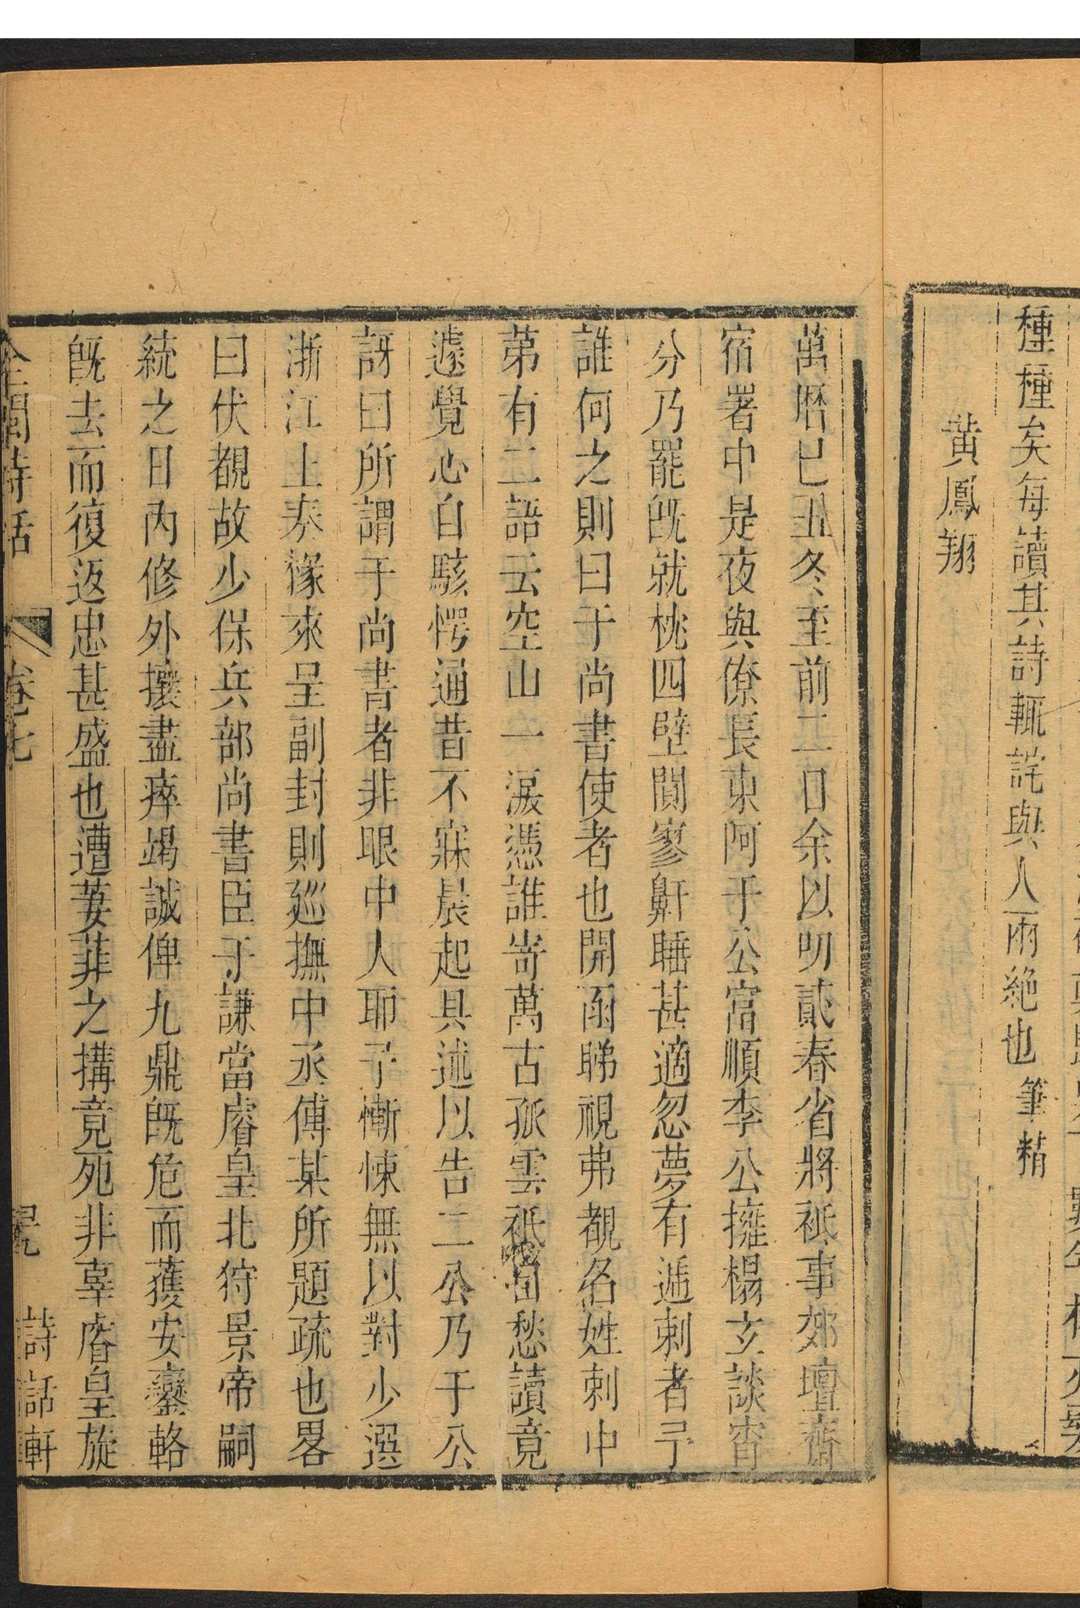 種種矣每讀其詩輒詫與人雨絶也筆精
黄鳳翔
萬曆已丑冬至前二日余以明貳春省將祗事郊壇齋
宿署中是夜與僚長東阿于公富順李公擁榻玄談宵
分乃罷旣就枕四壁闃寥鼾睡甚適忽夢有遞刺者予
誰何之則曰于尚書使者也開函睇視弗覩名姓刺中
第有二語云空山一淚憑誰寄萬古孤雲祗自愁讀竟
遽覺心自駭愕通昔不寐晨起具述以告二公乃于公
訝曰所謂于尚書者非眼中人耶予慚悚無以對少選
浙江上奏掾來呈副封則廵撫中丞傅某所題疏也畧
曰伏覩故少保兵部尚書臣于謙當睿皇北狩景帝嗣
統之日內修外攘盡瘁竭誠俾九鼎旣危而獲安鑾輅
旣去而復返忠甚盛也遭萋菲之搆竟死非辜睿皇旋
全閩詩話 卷七 詩話軒